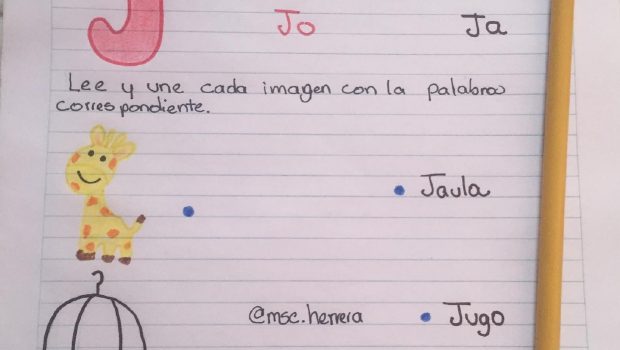 J Jo Ja
Lee y une cada imagen con la palabra
correspondiente.
Jaula
@msc.herrera Jugo